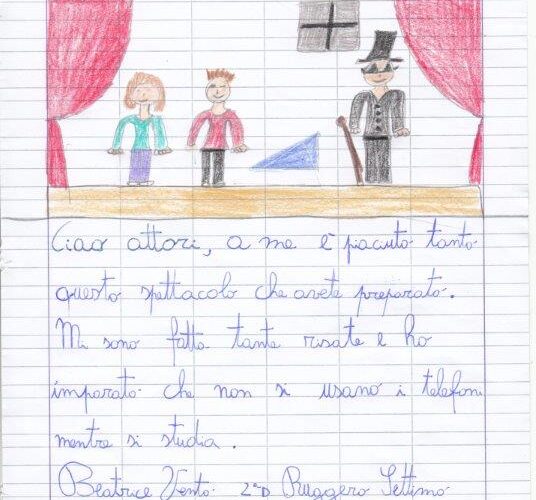 Ciao attori, a me è piaciuto tanto
questo spettacolo che avete preparato.
Mi sono fatta tante risate e ho
imparato che non si usano i telefoni
mentre si studia.
Beatrice Vento 2ªD Ruggero Settimo